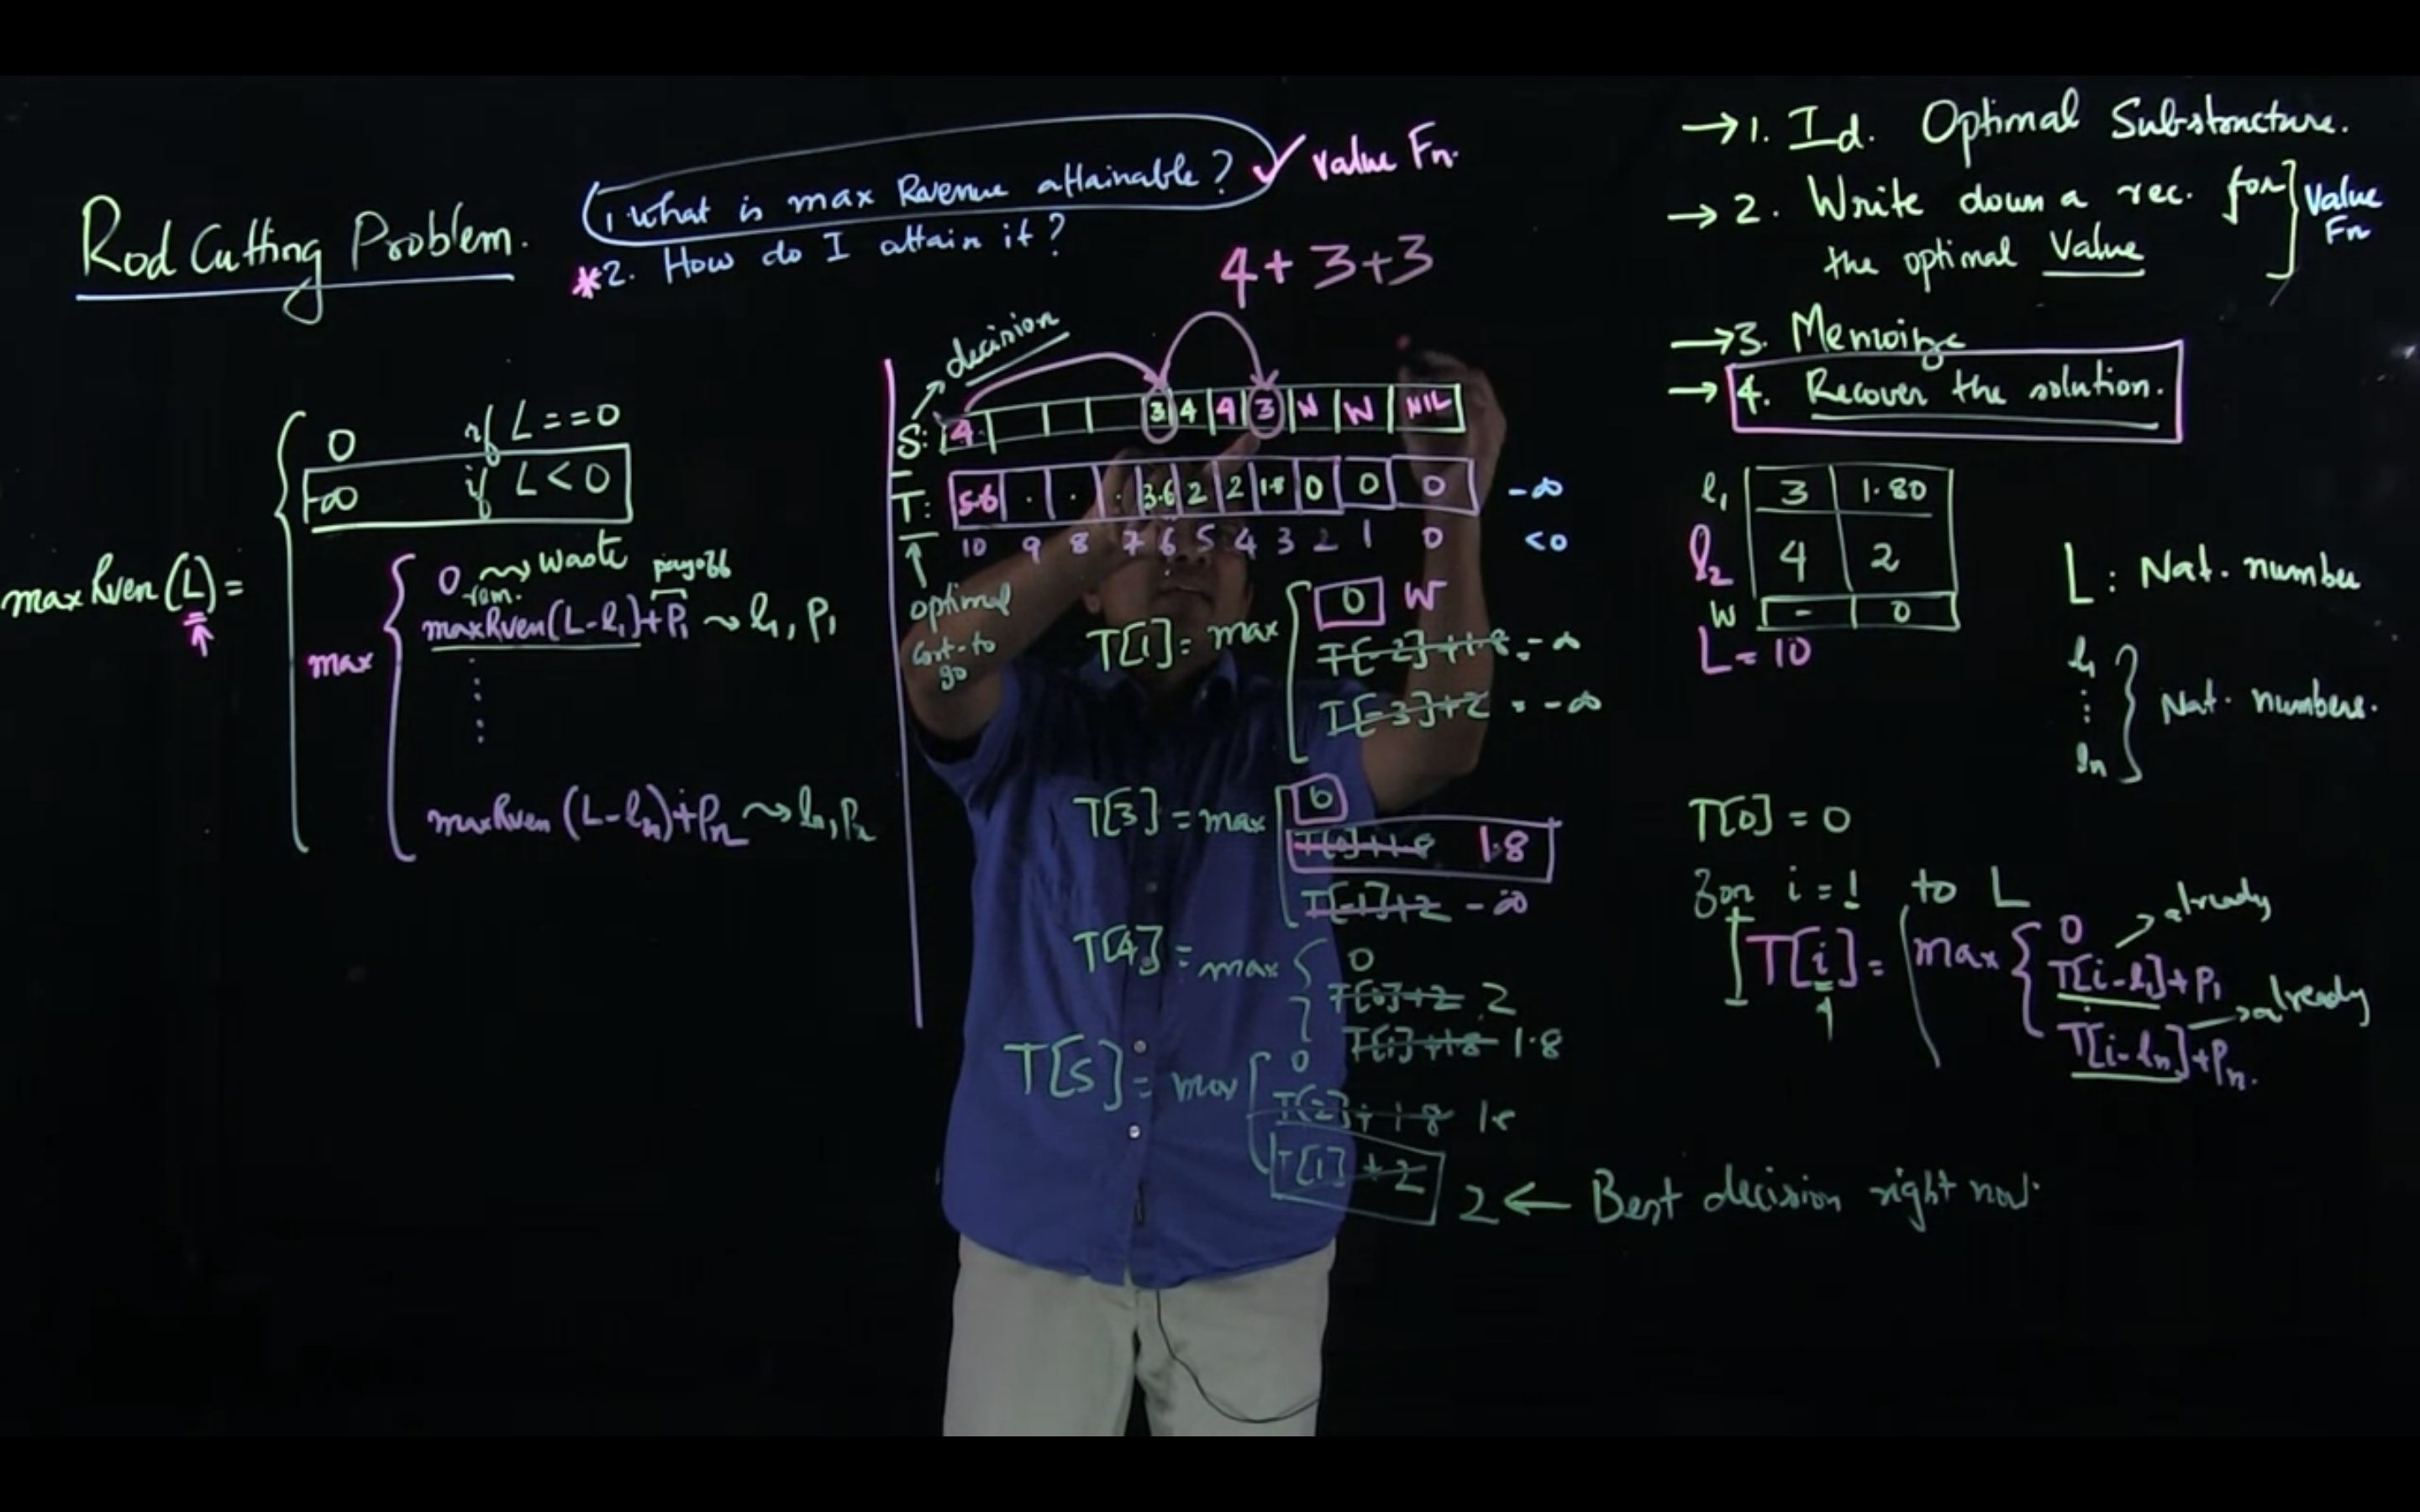 Rod Cutting Problem.
1. What is max Revenue attainable? ✓ Value Fn.
*2. How do I attain it?
4+3+3
→ 1. Id. Optimal Substructure.
→ 2. Write down a rec. for
the optimal Value
Value Fn
→ 3. Memoize
→ 4. Recover the solution.
maxRven(L) =
0 if L==0
-∞ if L<0
max
0 ⇝ Waste
rem. payoff
maxRven(L-l₁)+P₁ ⇝ l₁, P₁
⋮
maxRven(L-lₙ)+Pₙ ⇝ lₙ, Pₙ
decision
S: 4 3 4 4 3 W W NIL
T: 5.6 . . . 3.6 2 2 1.8 0 0 0 -∞
10 9 8 7 6 5 4 3 2 1 0 <0
optimal
cost-to
go
T[1] = max
0 W
T[-2]+1.8 = -∞
T[-3]+2 = -∞
T[3] = max
0
T[0]+1.8 1.8
T[-1]+2 -∞
T[4] = max
0
T[0]+2 2
T[1]+1.8 1.8
T[5] = max
0
T[2]+1.8 1.8
T[1]+2 2 ← Best decision right now.
l₁ 3 1.80
l₂ 4 2
W - 0
L = 10
L : Nat. number
l₁
⋮ Nat. numbers.
lₙ
T[0] = 0
For i = 1 to L
T[i] = max
0
T[i-l₁]+P₁ → already
T[i-lₙ]+Pₙ. → already